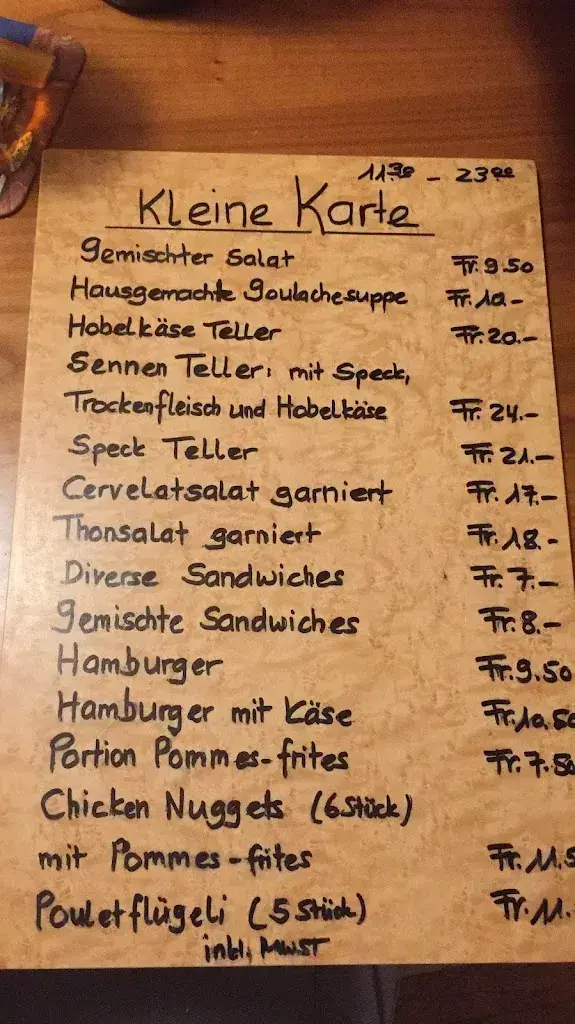 11.30 - 23.00
Kleine Karte
Gemischter Salat Fr. 9.50
Hausgemachte Goulachesuppe Fr. 10.-
Hobelkäse Teller Fr. 20.-
Sennen Teller: mit Speck,
Trockenfleisch und Hobelkäse Fr. 24.-
Speck Teller Fr. 21.-
Cervelatsalat garniert Fr. 17.-
Thonsalat garniert Fr. 18.-
Diverse Sandwiches Fr. 7.-
Gemischte Sandwiches Fr. 8.-
Hamburger Fr. 9.50
Hamburger mit Käse Fr. 10.50
Portion Pommes-frites Fr. 7.50
Chicken Nuggets (6 Stück)
mit Pommes-frites Fr. 11.5
Pouletflügeli (5 Stück) Fr. 11.
inkl. MwST